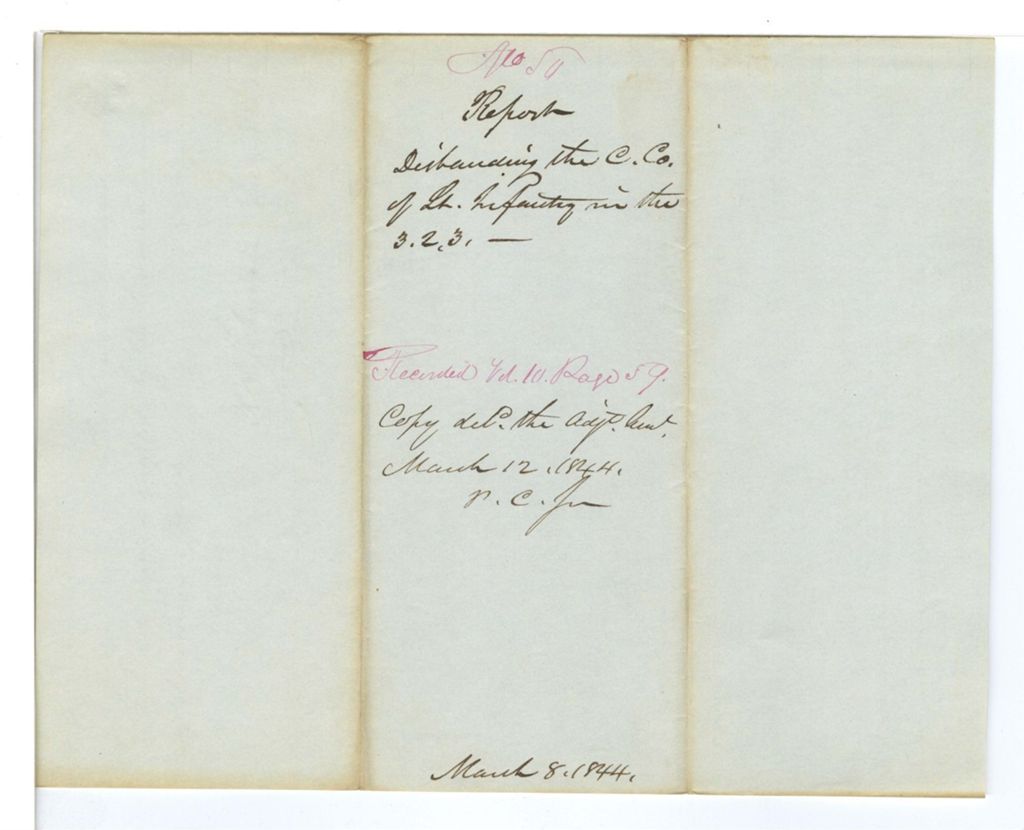 No 59
Report
Disbanding the C. Co.
of Lt. Infantry in the
3.2.3. —
Recorded Vol. 10. Page 59.
Copy deld. the Adjt. Genl.
March 12. 1844.
P. C. Jr
March 8. 1844.